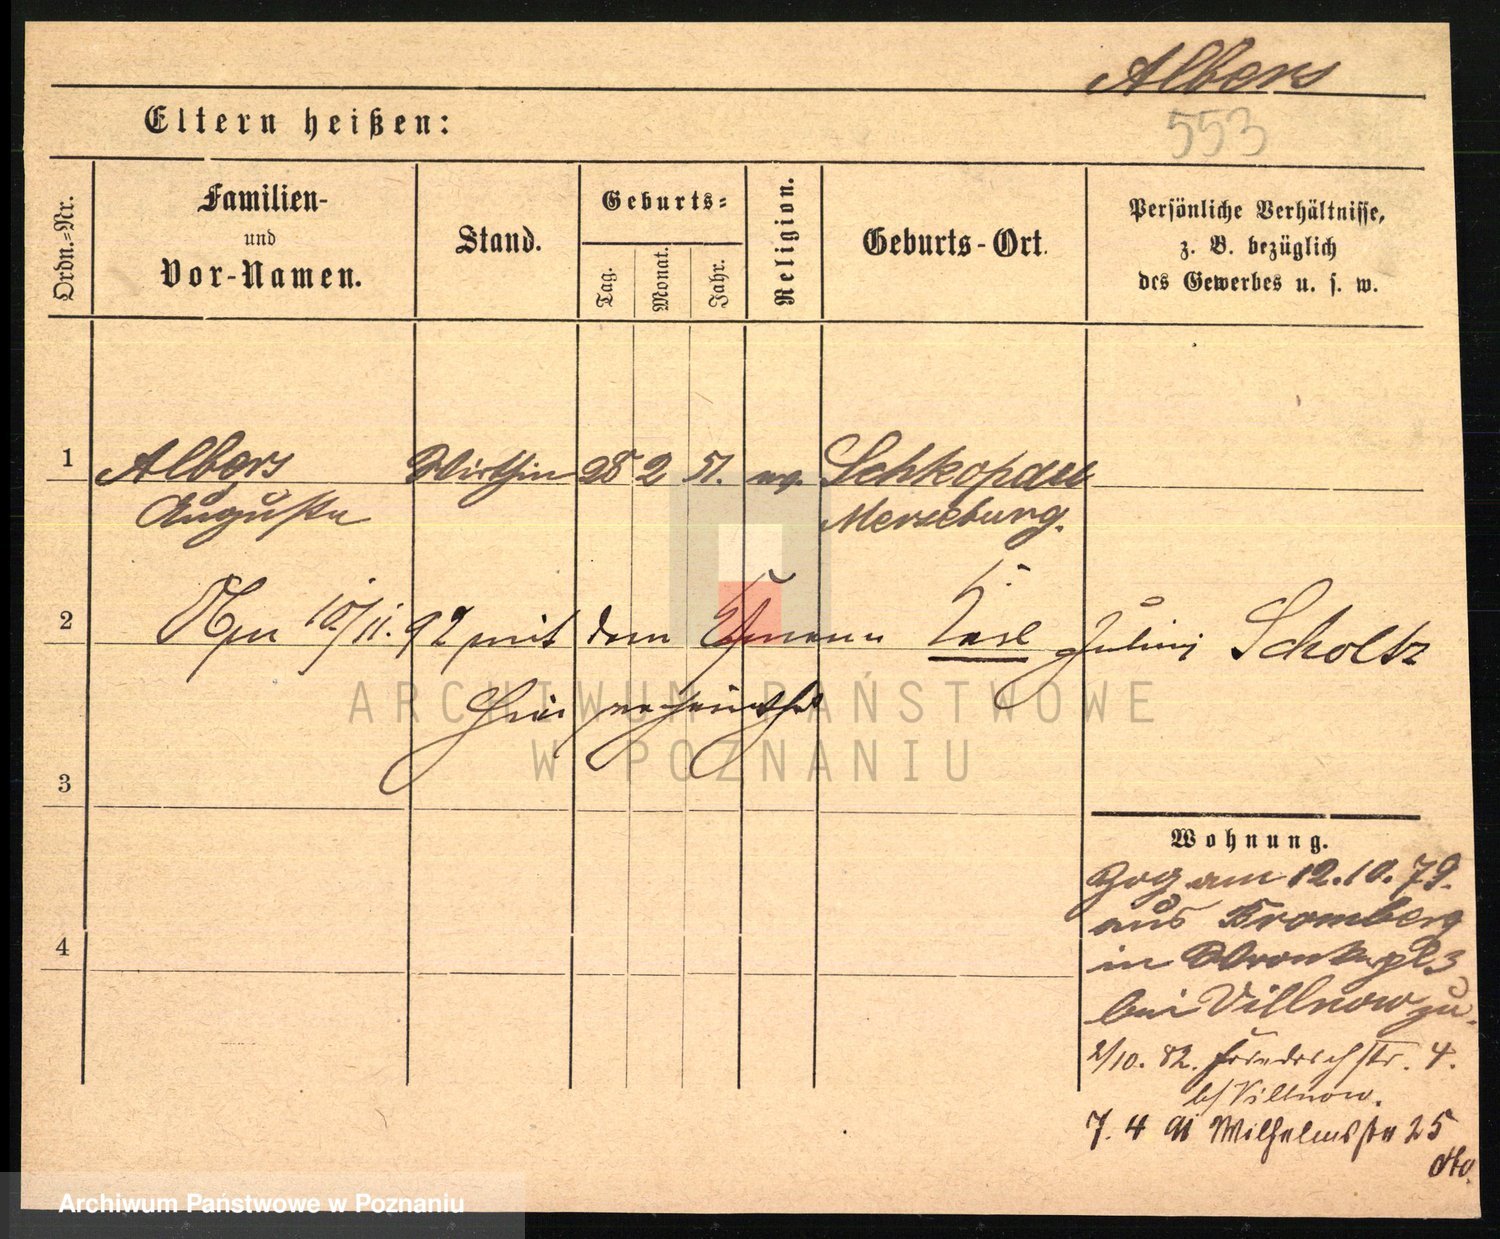 Albers
Eltern heißen:
553
Ordn.-Nr.
Familien-
und
Vor-Namen.
Stand.
Geburts-
Tag.
Monat.
Jahr.
Religion.
Geburts-Ort.
Persönliche Verhältnisse,
z. B. bezüglich
des Gewerbes u. s. w.
1 Albers Wirthin 28 2 51. ev. Schkopau
Auguste Merseburg.
2 10/11. 92 mit dem Ehmann Carl Julius Scholtz
hier
ARCHIWUM PAŃSTWOWE
W POZNANIU
3
Wohnung.
Zog am 12.10.79.
aus Bromberg
in Wronkerpl 3
4
bei Villnow zu.
2/10. 82. Friedrichstr. 4.
b/ Villnow.
7. 4 91 Wilhelmstr 25
dto.
Archiwum Państwowe w Poznaniu